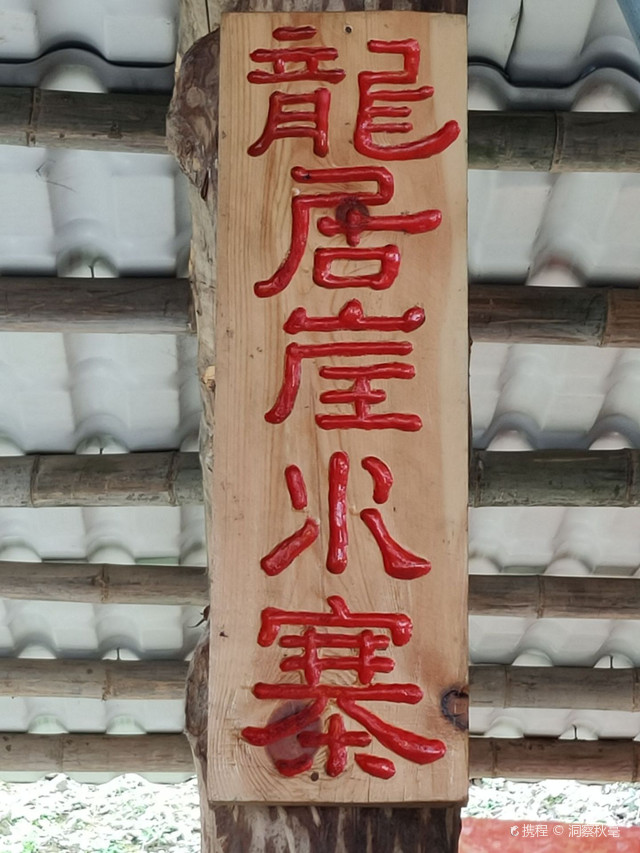 龍居崖水寨
携程 © 洞察秋毫